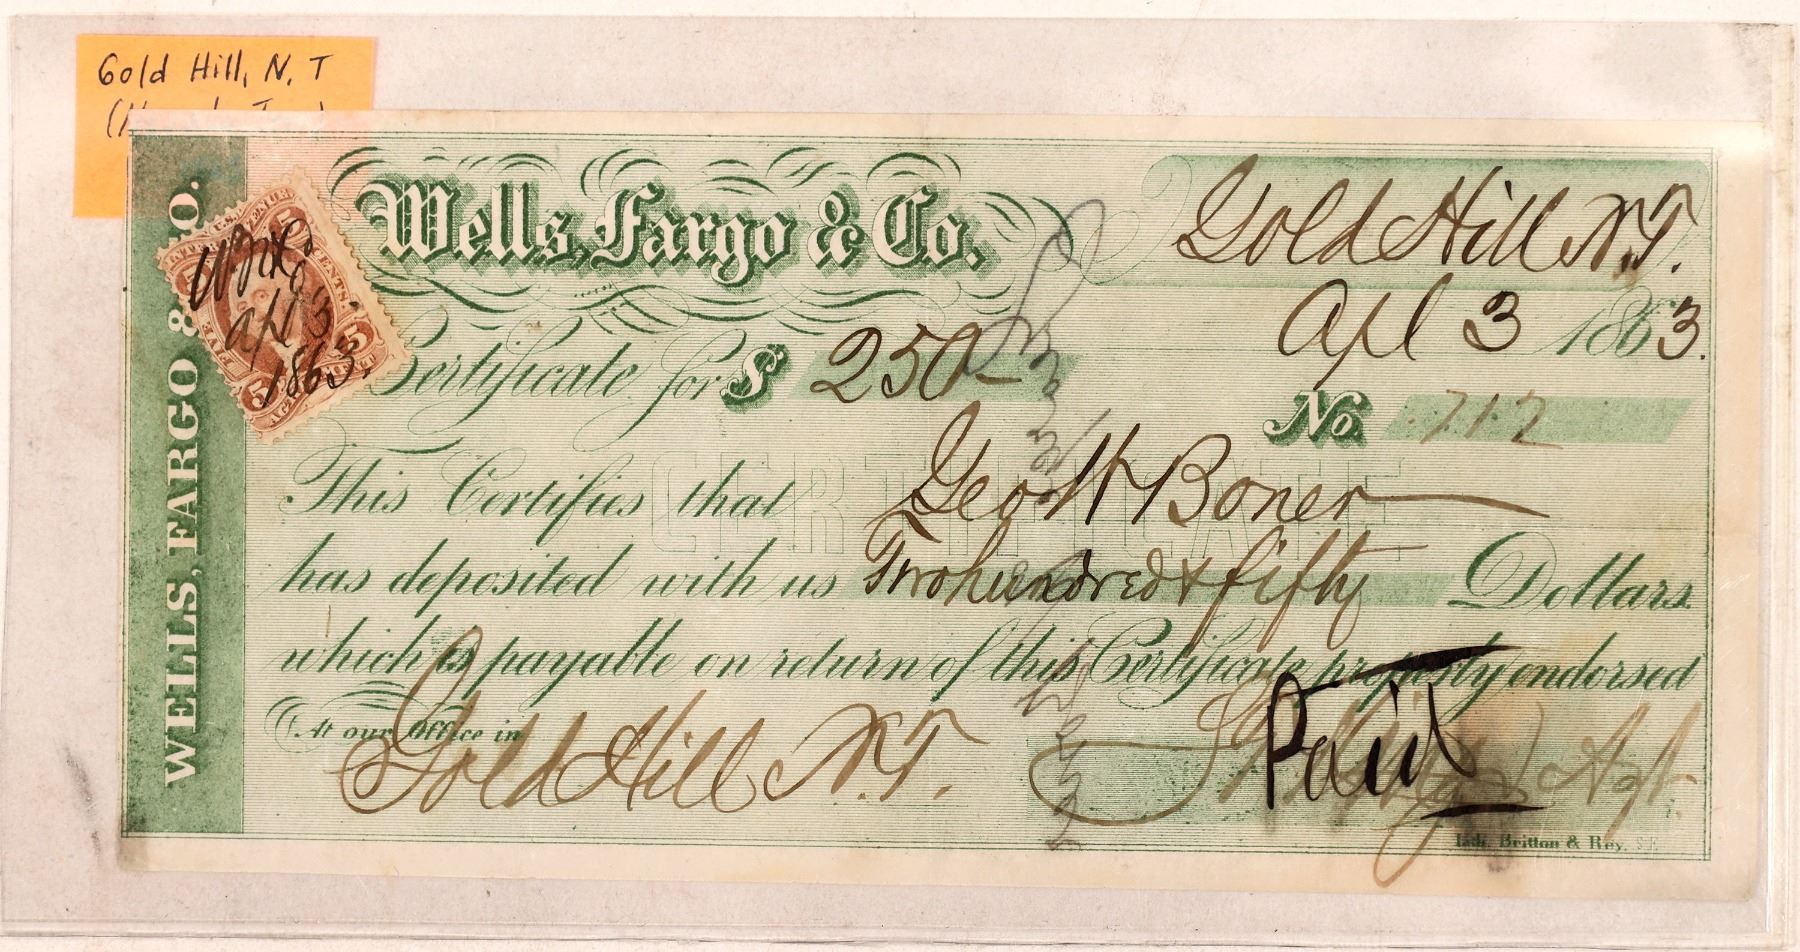 Gold Hill, N. T
WELLS, FARGO & CO.
Wells, Fargo & Co.
Gold Hill N.T.
Apl 3 1863.
INTER. REVENUE
FIVE CENTS.
5 5
W.F.&Co
Apl 3
1863.
Certificate for $ 250-
No. 712
CERTIFICATE
This Certifies that Geo W Boner
has deposited with us Two hundred & fifty Dollars
which is payable on return of this Certificate properly endorsed
At our Office in
Gold Hill N.T.
Paid
Agt
Lith. Britton & Rey. S.F.